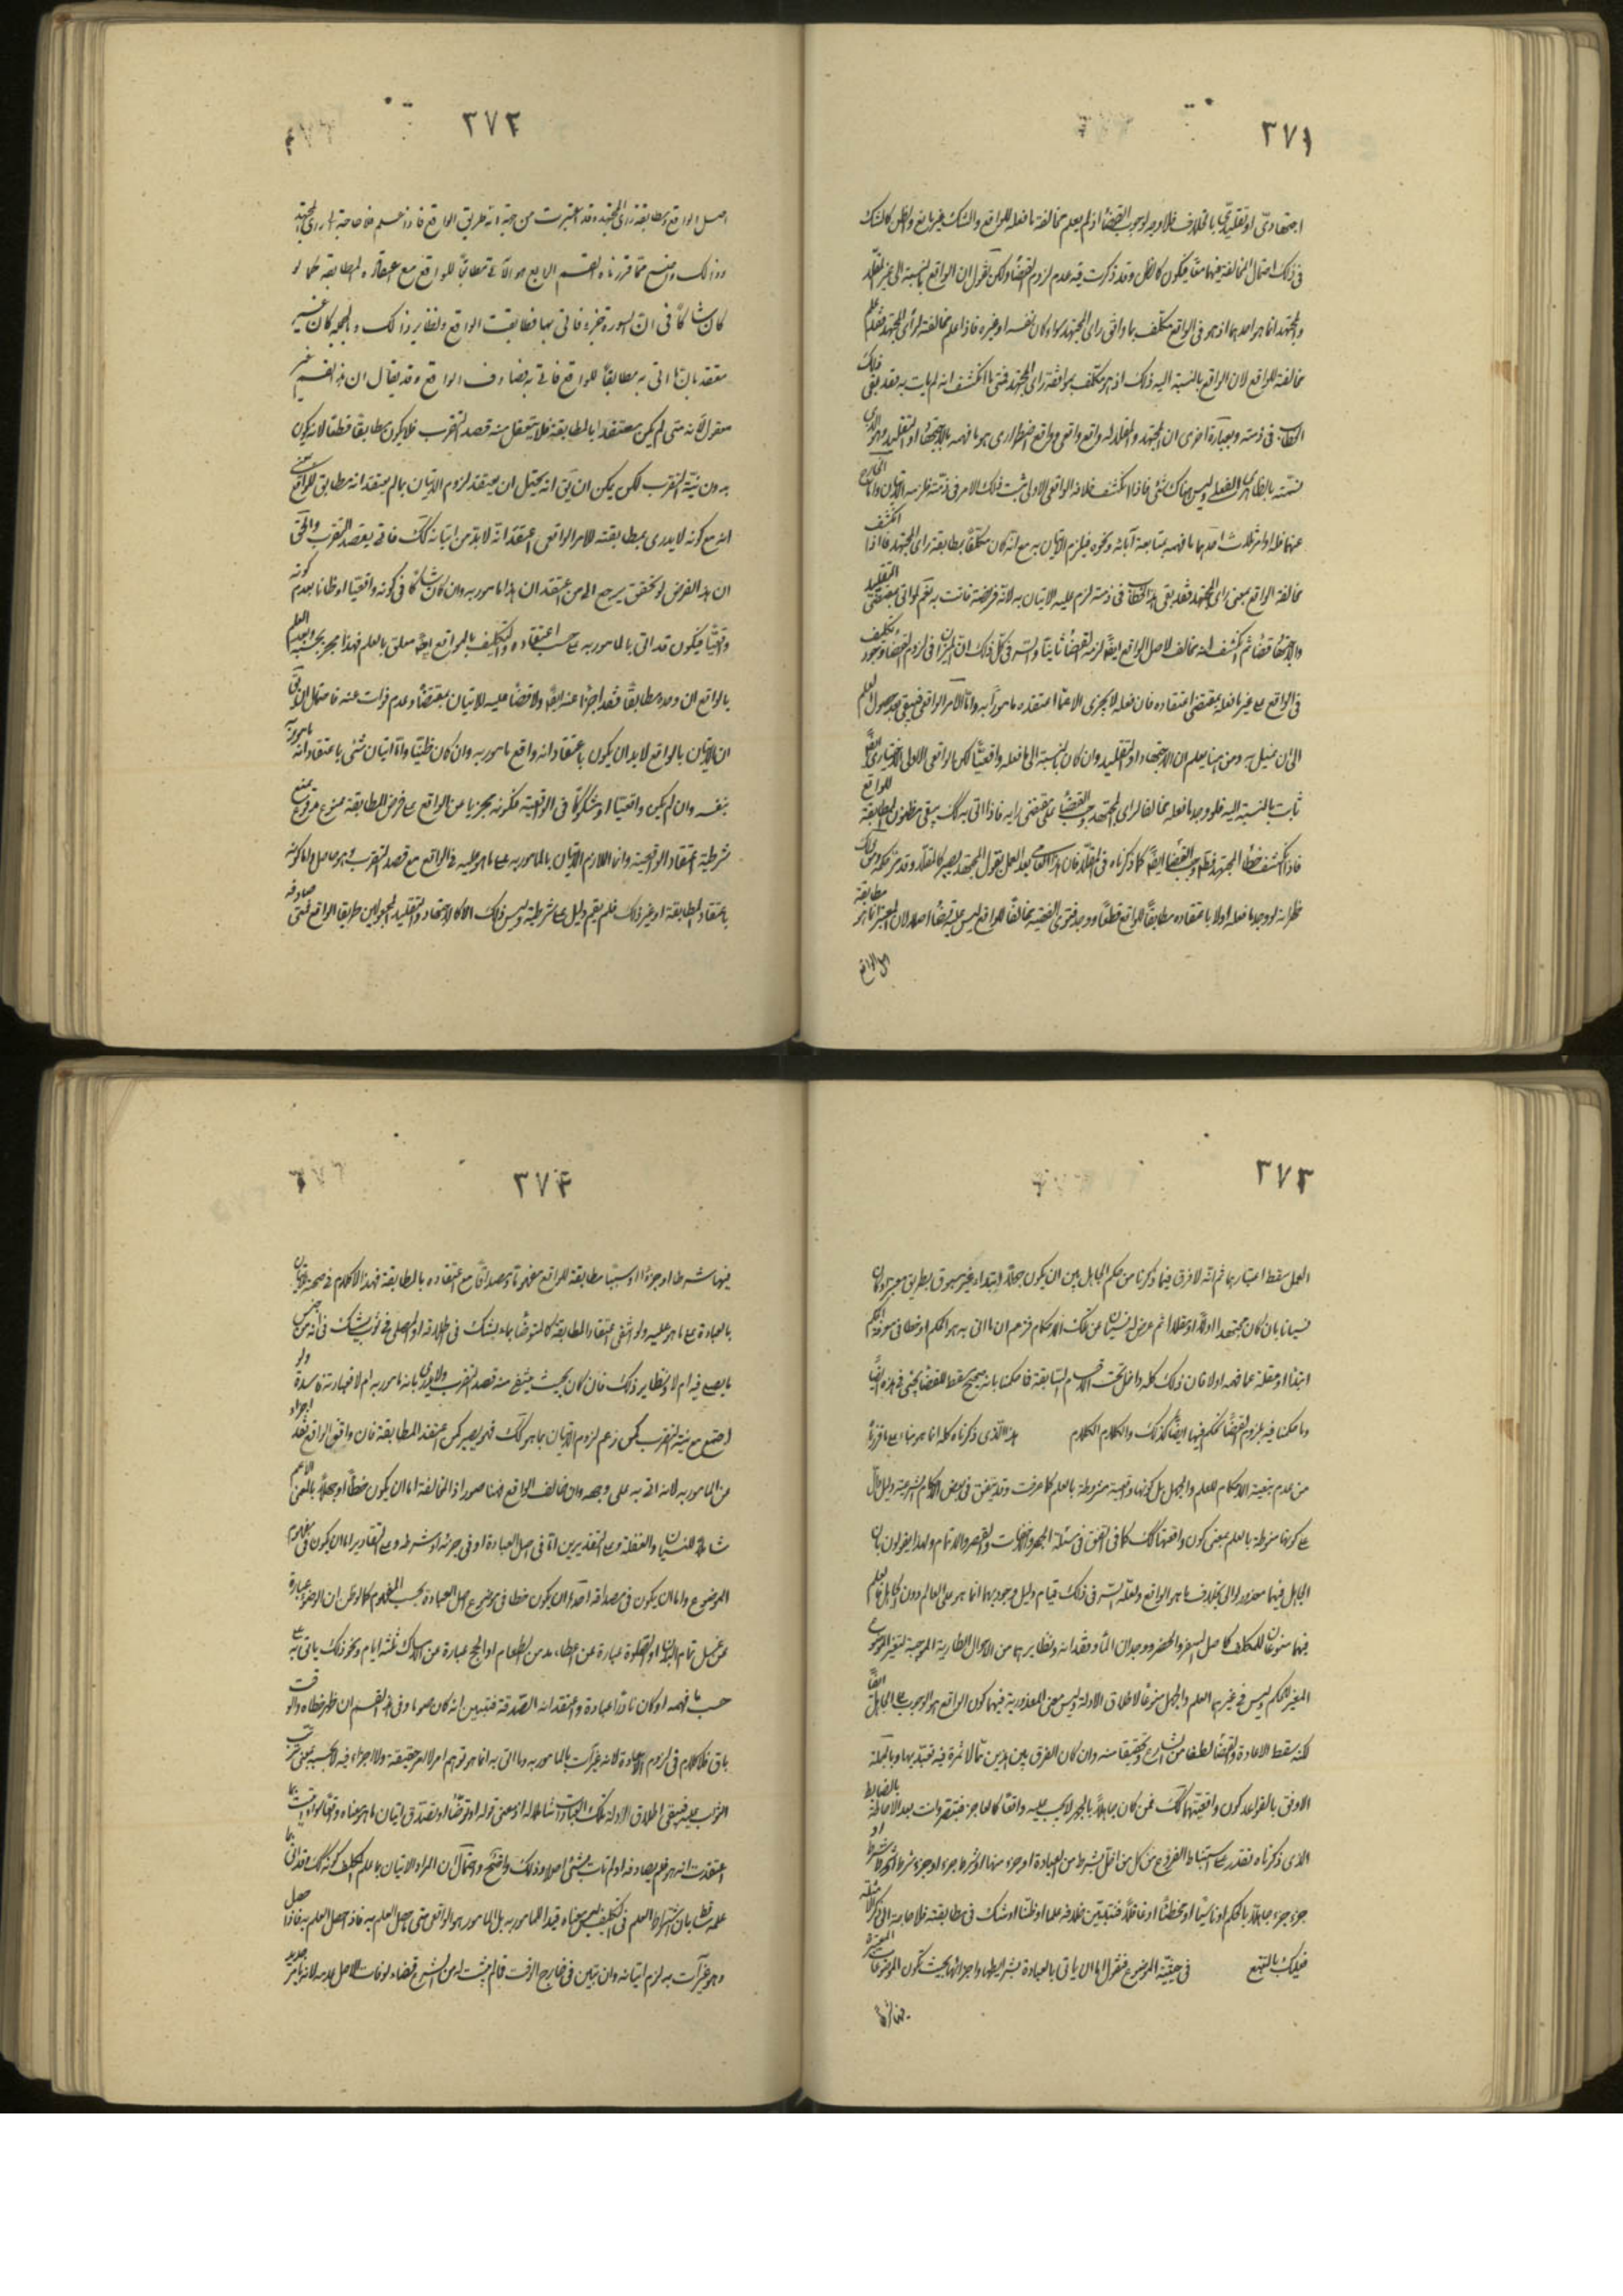 ٣٧١
اجتهادىّ او تقليدىّ بالخلاف فلا وجه لوجوب القضاء اذ لم يعلم مخالفة ما فعله للواقع والشك غير مانع والظن كالشك
فى ذلك احتمال المخالفة فيهما معًا فيكون كالظن وقد ذكرت فيه عدم لزوم القضاء ولكن نقول ان الواقع بالنسبة الى غير المقلد
والمجتهد انما هو احدهما اذ هو فى الواقع مكلّف بما وافق راى المجتهد سواء كان نفسه او غيره فاذا علم مخالفته لرأى المجتهد فقد علم
مخالفته للواقع لان الواقع بالنسبة اليه ذلك اذ هو مكلّف بموافقة راى المجتهد فمتى ما انكشف انه لم يات به فقد بقى ذلك
الخطاب فى ذمته وبعبارة اخرى ان المجتهد والمقلد له واقع واقعى وواقع اضطرارى هو ما فهمه بالاجتهاد او التقليد وهو الذى
وليس هناك شئ فاذا انكشف خلافه الواقعى الاولى ثبت ذلك الامر فى ذمته
ما فهمه بمتابعة آبائه ونحوه فيلزم الاتيان به مع انّه كان مكلّفًا بمطابقة راى المجتهد فاذا انكشف
مخالفة الواقع بمعنى راى المجتهد فقد بقى هذا الخطاب فى ذمته لزم عليه الاتيان به لانّه فريضة فاتت به نعم لو اتى بمقتضى التقليد
ثم انكشف انه مخالف لاصل الواقع ايضًا لزمه القضاء ثانيًا والسر فى كلّ ذلك ان الميزان فى لزوم القضاء
فى الواقع على غير ما فعله بمقتضى اعتقاده فان فعله لا يجزى الا عمّا اعتقده مامورًا به وامّا الامر الواقعى فيبقى بعد حصول العلم
ومن هنا يعلم ان الاجتهاد او التقليد وان كان بالنسبة الى ما فعله واقعيًّا لكن الواقعى الاولى الاختيارى ايضًا
ثابت بالنسبة اليه فلو وجد ما فعله مخالفًا لراى المجتهد وجب القضاء على مقتضى رايه فاذا اتى به كك يبقى مظنون المطابقة للواقع
فاذا انكشف خطأ المجتهد قطعًا وجب القضاء ايضًا كما ذكرناه فى المقلّد فان هذا العامى بعد العمل بقول المجتهد يصير كالمقلّد وقد مرّ حكمه ومن ذلك
ظهر انه لو وجد ما فعله اولا باعتقاده مطابقًا للواقع قطعًا ووجد فتوى الفقيه مخالفًا للواقع ليس عليه قضاء اصلا لان المعتبر انما هو مطابقة
اصل الواقع
٣٧٢
اصل الواقع ومطابقة راى المجتهد قد اعتبرت من جهة انه طريق الواقع فاذا علم فلا حاجة الى راى المجتهد
وذلك واضح ممّا قررناه القسم الرابع هو الآتى مطابقًا للواقع مع عدم اعتقاده المطابقة كما لو
كان شاكًا فى انّ السورة جزء فاتى بها فطابقت الواقع ونظاير ذلك وبالجملة كان غير
معتقد بان ما اتى به مطابقًا للواقع فاتى به فصادف الواقع وقد يقال ان هذا القسم غير
معقول لانّه متى لم يكن معتقدًا بالمطابقة فلا يتعقل منه قصد التقرب فلا يكون مطابقًا قطعًا لانه يكون
بدون نيّة التقرب لكن يمكن ان يقَ انه يحتمل ان يعتقد لزوم الاتيان بما لم يعتقد انه مطابق للواقع بمعنى
انه مع كونه لا يدرى بمطابقته للامر الواقعى اعتقد انّه لابدّ من اتيانه كك فاتى بقصد التقرب والحق
ان هذا الفرض لو تحقق يرجع الى من اعتقد ان هذا مامور به وان كان شاكًّا فى كونه واقعيًّا او ظانا بعدم كونه
واقعيًّا فيكون قد اتى بالمامور به على حسب اعتقاده والتكليف بالواقع ايضًا معلق بالعلم فهذا مجز بحسبه وبعد العلم
بالواقع ان وجده مطابقًا فقد اجزأ عنه ايضًا ولا قضاء عليه للاتيان بمقتضاه وعدم فوات عنه
ان الاتيان بالواقع لابد ان يكون باعتقاد انه واقع مامور به وان كان ظنيّا وامّا اتيان شئ باعتقاد انه مامور به
بنفسه وان لم يكن واقعيّا او مشكوكًا فى الواقعية فكونه مجزيا عن الواقع على فرض المطابقة ممنوع مدفوع بمنع
شرطية اعتقاد الواقعية وانما اللازم الاتيان بالمامور به على ما هو عليه فى الواقع مع قصد التقرب وهو حاصل وامّا كونه
باعتقاد المطابقة او غير ذلك فلم يقم دليل على شرطيته وليس ذلك الا كالاجتهاد والتقليد المجعولين طريقا للواقع فمتى صادفه
٣٧٣
العمل سقط اعتبارهما ثم انّه لا فرق فيما ذكرنا من حكم الجاهل بين ان يكون جهلا ابتداء غير مسبوق بطريق معتبر او كان
نسيانا بان كان مجتهدا اولا او مقلدا ثم عرض له نسيان عن تلك الاحكام فزعم ان ما اتى به هو الحكم او خطا فى معرفة الحكم
ابتداء او غفلة عما فهمه اولا فان ذلك كله داخل تحت الاقسام السابقة فما حكمنا بانه صحيح مسقط للقضاء يجئ فى هذه ايضًا
وما حكمنا فيه بلزوم القضاء نحكم فيها ايضًا كذلك والكلام الكلام هذا الّذى ذكرناه كله انما هو بناء على ما قررناه
من عدم تبعية الاحكام للعلم والجهل بل كونها واقعية مشروطة بالعلم كما عرفت وقد يتفق فى بعض الاحكام الشرعية دليل دالّ
على كونها منوطة بالعلم بمعنى كون واقعيتها كك كما فى اتفق فى مسئلة الجهر والاخفات والقصر والاتمام ولهذا يقولون بان
الجاهل فيهما معذور لو اتى بخلاف ما هو الواقع ولعلّ السر فى ذلك قيام دليل وجوبهما انما هو على العالم دون الجاهل فالعلم
فيهما منوعان للمكلف كاصل السفر والحضر ووجدان الماء وفقدانه ونظايرهما من الاحوال الطارية الموجبة لتغير الموضوع
المغير للحكم وليس فى غيرهما العلم والجهل منوعًا لاطلاق الادلة وليس معنى المعذورية فيهما كون الواقع هو الوجوب على الجاهل ايضًا
لكنه سقط الاعادة والقضاء لطفا من الشارع وتخفيفا منه وان كان الفرق بين هذين ممّا لا ثمرة فيه فتدبر وبالجملة
الاوفق بالقواعد كون واقعيتهما كك فمن كان جاهلا بالجهر لا يجب عليه واقعًا كالعاجز فبعد الاحاطة بالضابط
الذى ذكرناه تقدر على استنباط الفروع من كل من اخلّ بشرط من العبادة او جزء منها او شرط جزء او جزء شرط او شرط شرط او
جزء جزء جاهلًا بالحكم او ناسيًا او مخطئًا او غافلًا فتبيّن خلافه علما او ظنّا او شك فى مطابقته فلا حاجة الى ذكر الامثلة
فعليك بالتتبع فى حيثية الموضوع فنقول اما ان ياتى بالعبادة بشرايطها واجزائها بحيث تكون الموضوعات المعتبرة
٣٧٤
فيها شرطا او جزءًا او سببًا مطابقة للواقع مفهومًا ومصداقًا مع اعتقاده بالمطابقة فهذا لا كلام فى صحته
بالعبادة على ما هو عليه ولو انتفى اعتقاد المطابقة كالمتوضّا بماء يشك فى اطلاقه او المصلى فى ثوب يشك فى انه من جنس
ما يصلى فيه ام لا ونظاير ذلك فان كان بحيث ينتفى منه قصد التقرب ولا يدرى بانه مامور به ام لا فعبادته فاسدة ولو
اجتمع مع نيّة التقرب كمن زعم لزوم الاتيان بما هو كك فهو يصير كمن اعتقد المطابقة فان وافق الواقع فقد اجزاه
عن المامور به لانه اتى به على وجهه وان خالف الواقع فهنا صور اذ المخالفة اما ان يكون خطأ او جهلًا بالمعنى الاعم
شاملا للنسيان والغفلة وعلى التقديرين امّا فى اصل العبادة او فى جزئه او شرطه وعلى التقادير اما ان يكون فى مفهوم
الموضوع واما ان يكون فى مصداقه احدها ان يكون خطا فى موضوع اصل العبادة بحسب المفهوم كما لو ظن ان الوضوء عبارة
عن غسل تمام البدن او الصلوة عبارة عن اعطاء مد من الطعام او الحج عبارة عن امساك ثلثة ايام ونحو ذلك ياتى به على
حسب ما فهمه او كان ناذرًا عبادة واعتقد انه الصّدقة فتبين انه كان صوما وفى هذا القسم ان ظهر خطاه والوقت
باق فلا كلام فى لزوم الاعادة لانه غير آت بالمامور به وما اتى به انما هو توهم امر لا امر حقيقة ولا اجزاء فيه
الثواب عليه فيبقى اطلاق الادلة بتلك العبادات شاملا له اذ معنى قوله او توضّأ او تصدّق اتيان ما هو معناه واقعًا لا ما
اعتقدت انه هو فلم يصادفه او لم تات بشئ اصلا وذلك واضح واحتمال ان المراد الاتيان بما علم المكلف كونه كك وقد اتى بما
علمه ساقط بان اشتراط العلم فى التكليف ليس معناه قيدا للمامور به بل المامور به هو الواقعى متى حصل العلم به فاذا حصل العلم به
وهو غير آت به لزم اتيانه وان تبين فى خارج الوقت فان لم يثبت له من الشرع قضاء لو فات الاصل